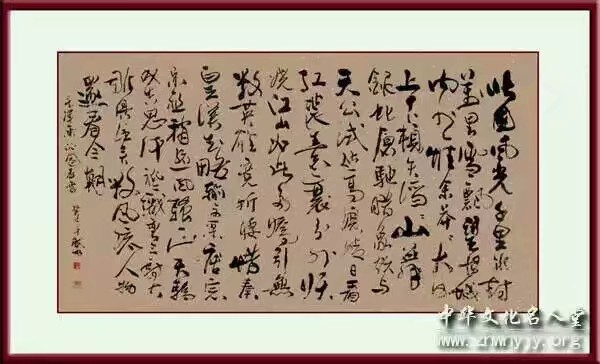 北国風光千里冰封
萬里雪飄望長城
内外惟余莽莽大河
上下頓失滔滔山舞
銀蛇原馳蜡象欲与
天公試比高須晴日看
红装素裹分外妖
娆江山如此多嬌引無
数英雄竞折腰惜秦
皇漢武略輸文采唐宗
宋祖稍逊風騷一代天驕
成吉思汗祇識彎弓射大
雕俱往矣数風流人物
還看今朝
毛澤東沁園春雪
中华文化名人堂
www.zhwhmrt.org